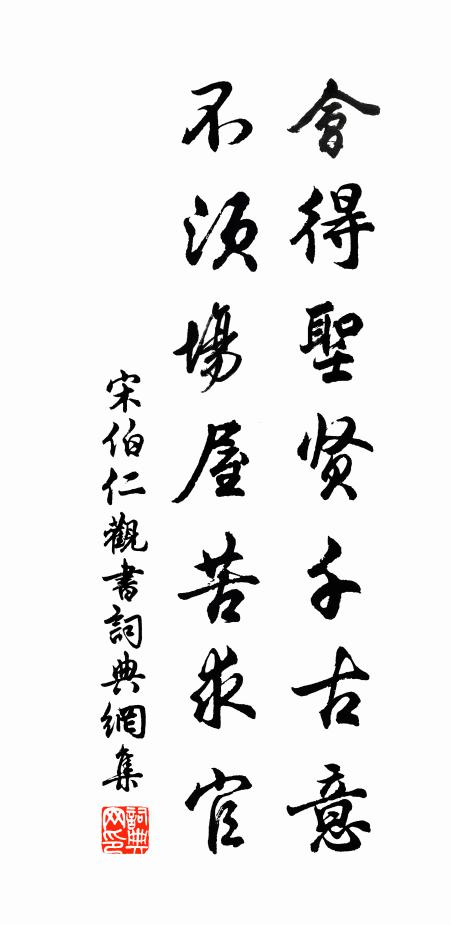 會得聖贤千古意
不須場屋苦求官
宋伯仁觀書詞典網集
詞典网印